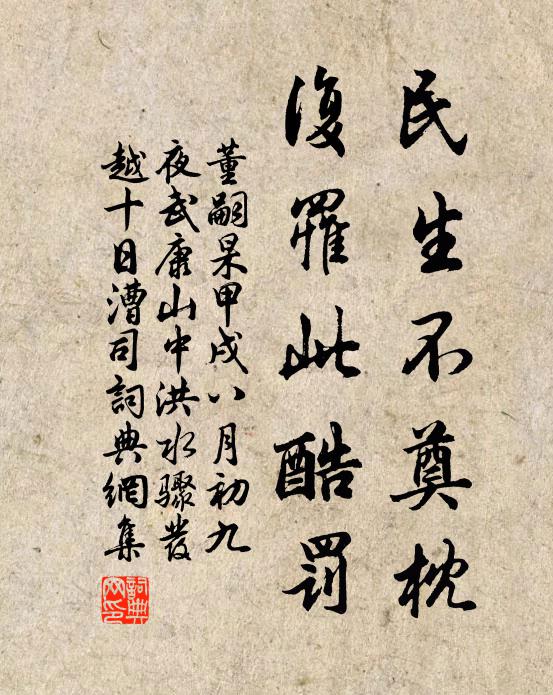 民生不奠枕
復罹此酷罰
董嗣杲甲戌八月初九
夜武康山中洪水驟發
越十日漕司詞典網集
詞典網印